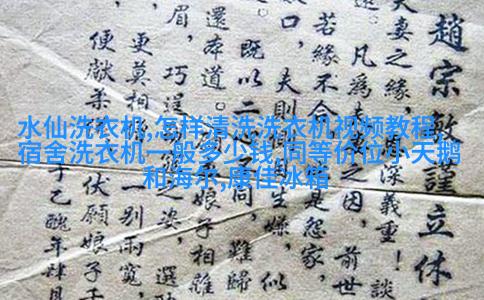 水仙洗衣机,怎样清洗洗衣机视频教程,
宿舍洗衣机一般多少钱,同等价位小天鹅
和海尔,康佳冰箱
趙宗敏謹立休
夫妻之緣,深義重!談
凡為夫之因,前世
若緣不合是怨家,
口,夫則生嫌,似
既以二心同,難歸
還本道。娘子相離
眉,巧逞之姿,選
更莫相一別兩寬,
便獻柔伏願娘子千
于乙醜年肆月